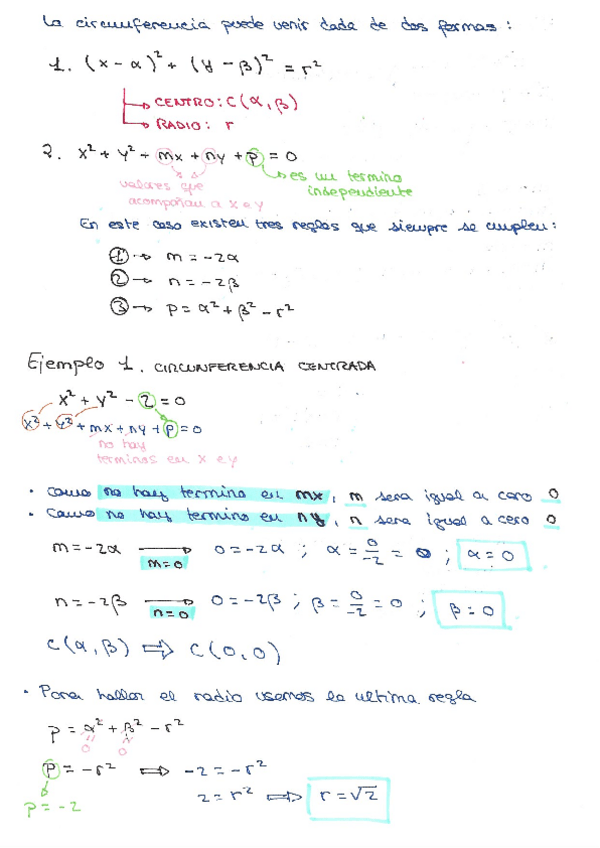 La circunferencia puede venir dada de dos formas:
1. (x - α)² + (y - β)² = r²
CENTRO: C(α, β)
RADIO: r
2. x² + y² + mx + ny + p = 0
es un termino
independiente
valores que
acompañan a x e y
En este caso existen tres reglas que siempre se cumplen:
① → m = -2α
② → n = -2β
③ → p = α² + β² - r²
Ejemplo 1. CIRCUNFERENCIA CENTRADA
x² + y² - 2 = 0
x² + y² + mx + ny + p = 0
no hay
terminos en x e y
· Como no hay termino en mx, m sera igual a cero 0
· Como no hay termino en ny, n sera igual a cero 0
m = -2α → m=0 0 = -2α ; α = 0/-2 = 0 ; α = 0
n = -2β → n=0 0 = -2β ; β = 0/-2 = 0 ; β = 0
C(α, β) ⇒ C(0,0)
· Para hallar el radio usemos la ultima regla
p = α² + β² - r²
0 0
p = -r² ⇒ -2 = -r²
p = -2 2 = r² ⇒ r = √2